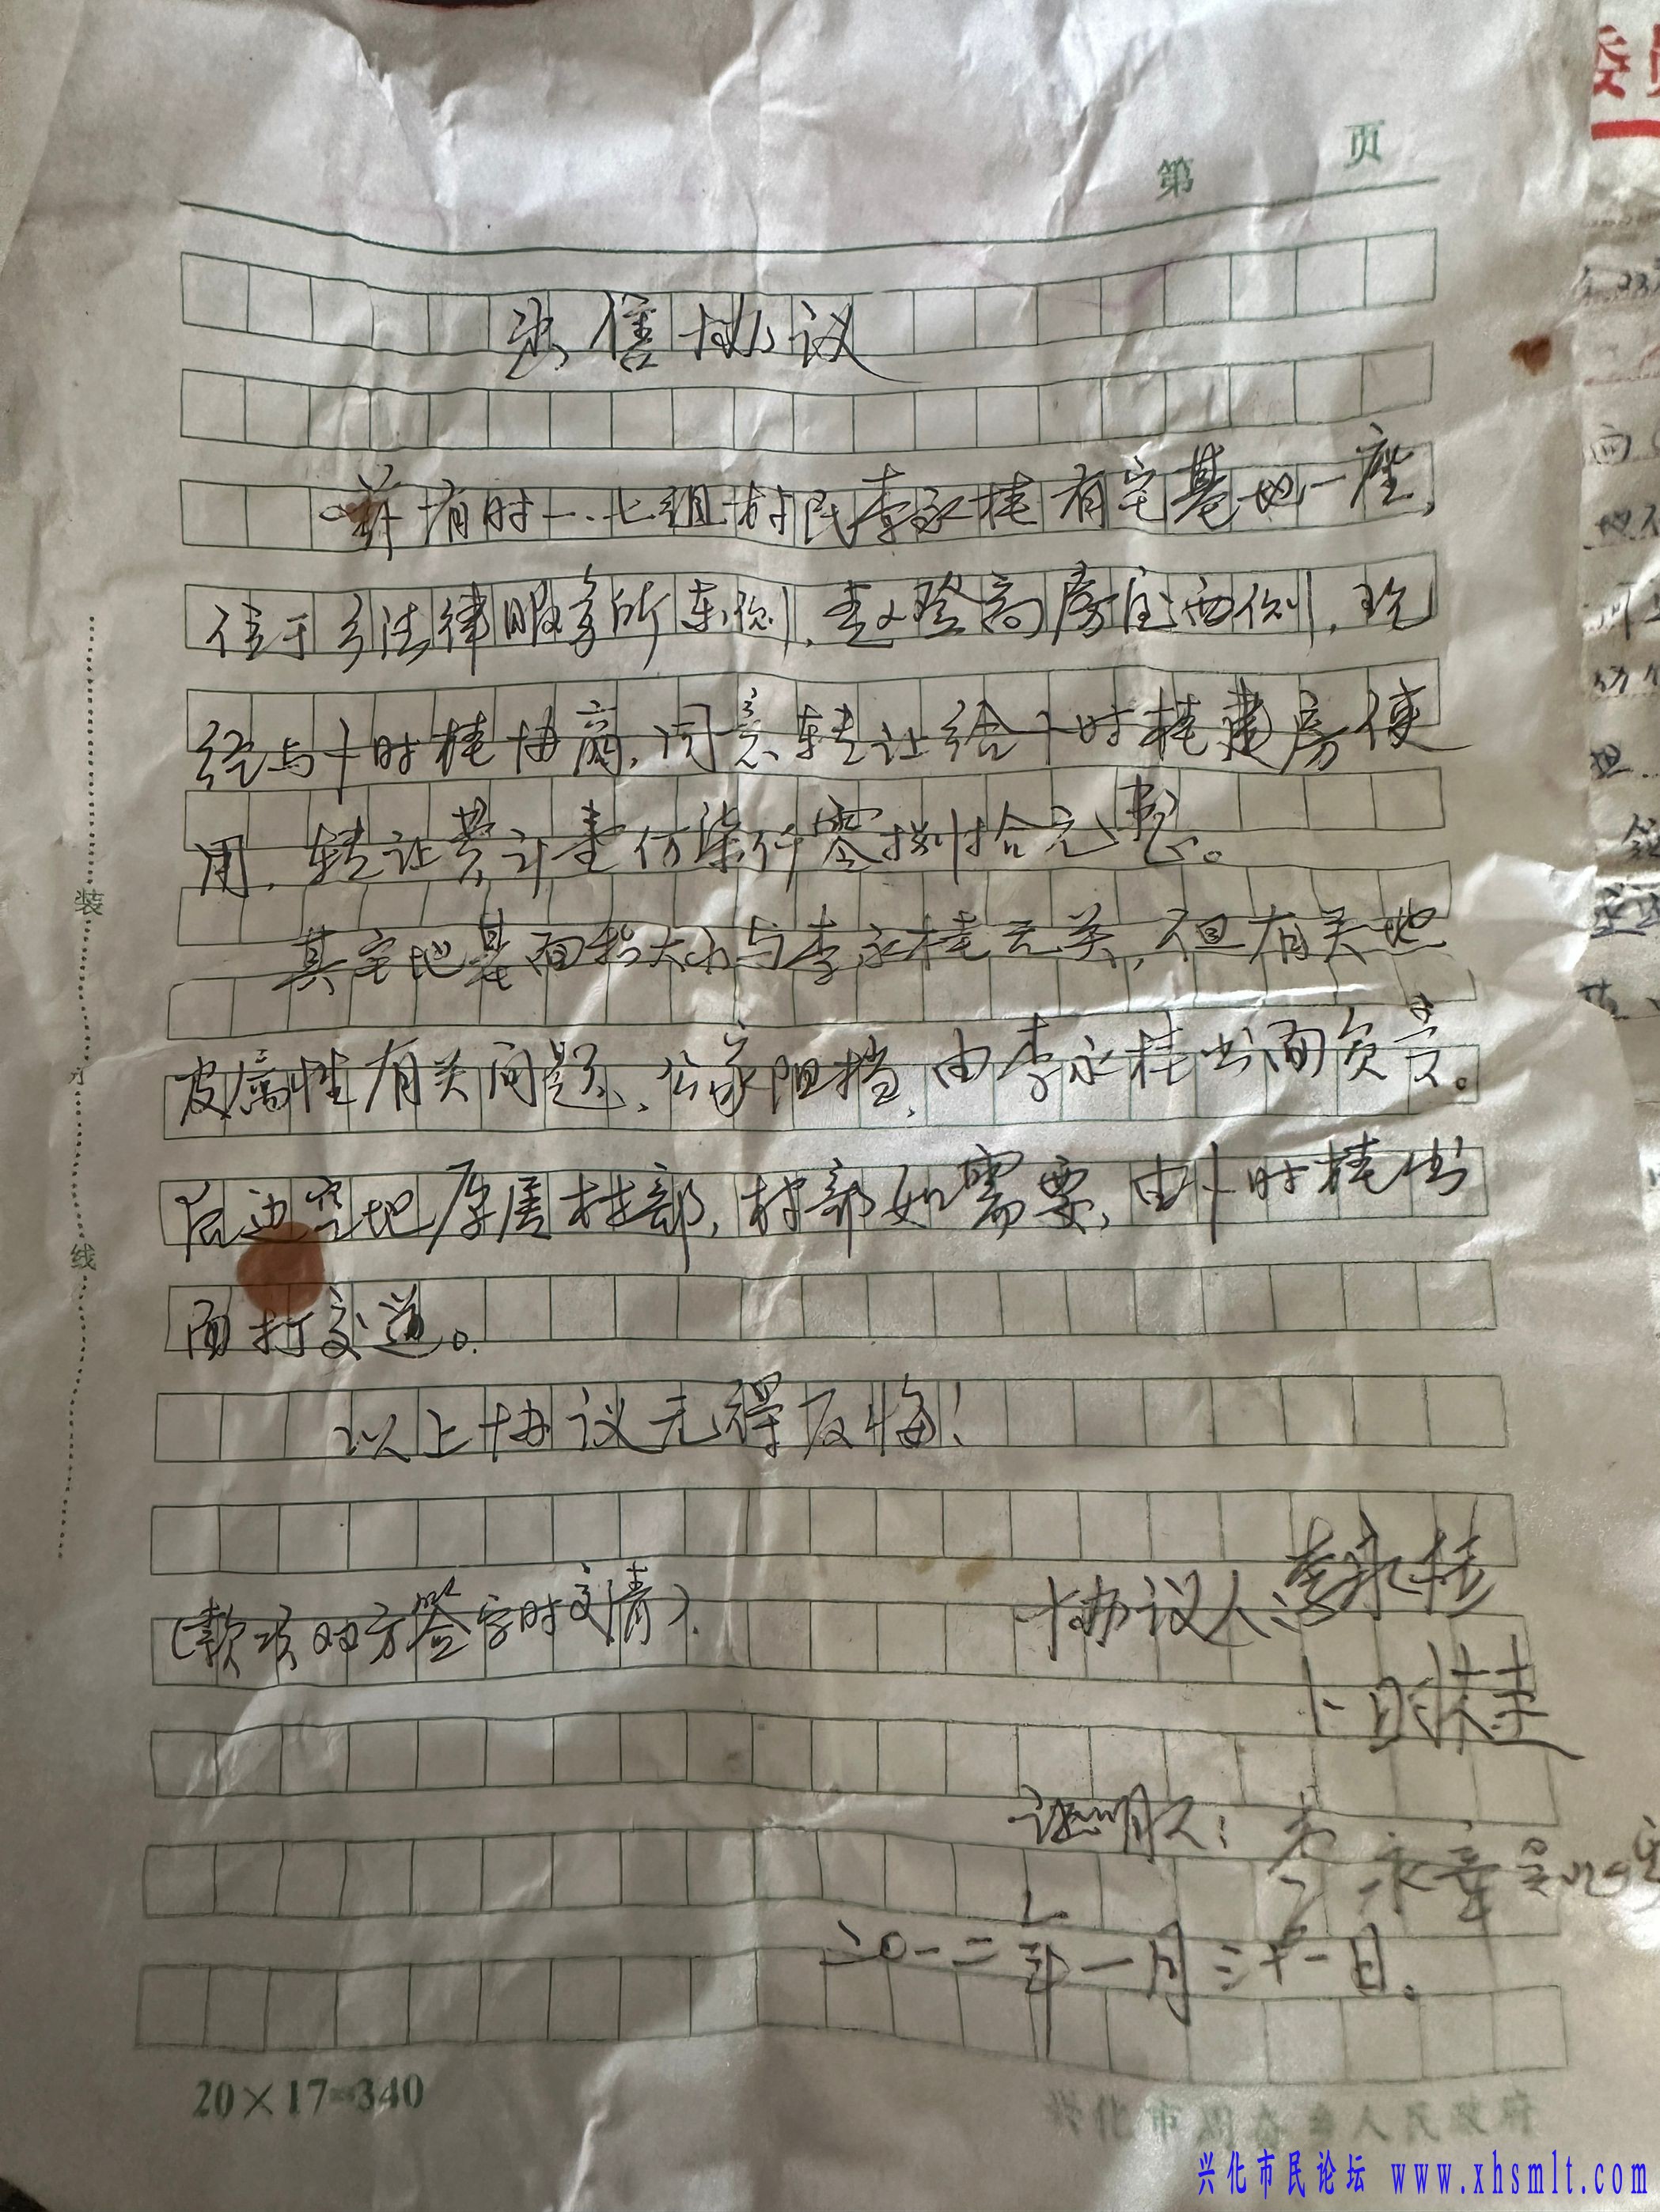 第 页
出售协议
兹有时一、七组村民李永桂有宅基地一座,
位于乡法律服务所东侧,赵登高房屋西侧,现
经与卜时桂协商,同意转让给卜时桂建房使
用,转让费计壹仟柒仟零捌拾元整。
其宅地基面积大小与李永桂无关,但有关地
皮属性有关问题、公家阻挡,由李永桂出面负责。
后边空地原属村部,村部如需要,由卜时桂出
面打交道。
以上协议无得反悔!
(款项双方签字时交清)
协议人:李永桂
卜时桂
证明人:
二〇一二年一月三十一日。
装
线
20×17=340
兴化市 人民政府
委员
兴化市民论坛 www.xhsmlt.com